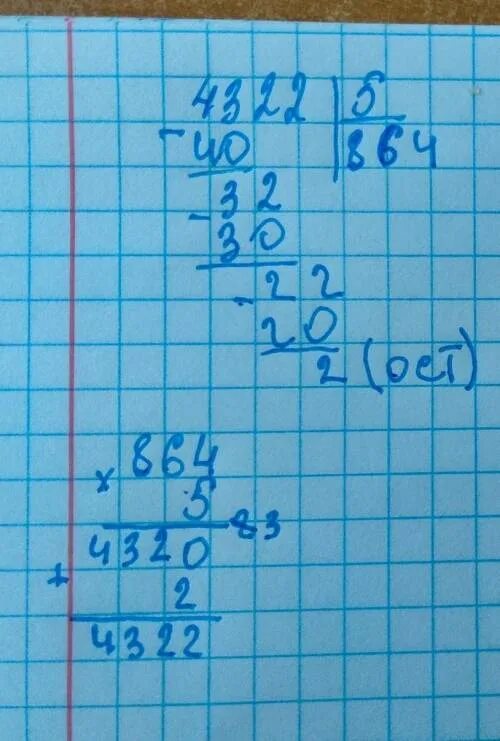 4322 5
- 40 864
- 32
30
- 22
20
2 (ост)
x 864
5
83
4320
+ 2
4322